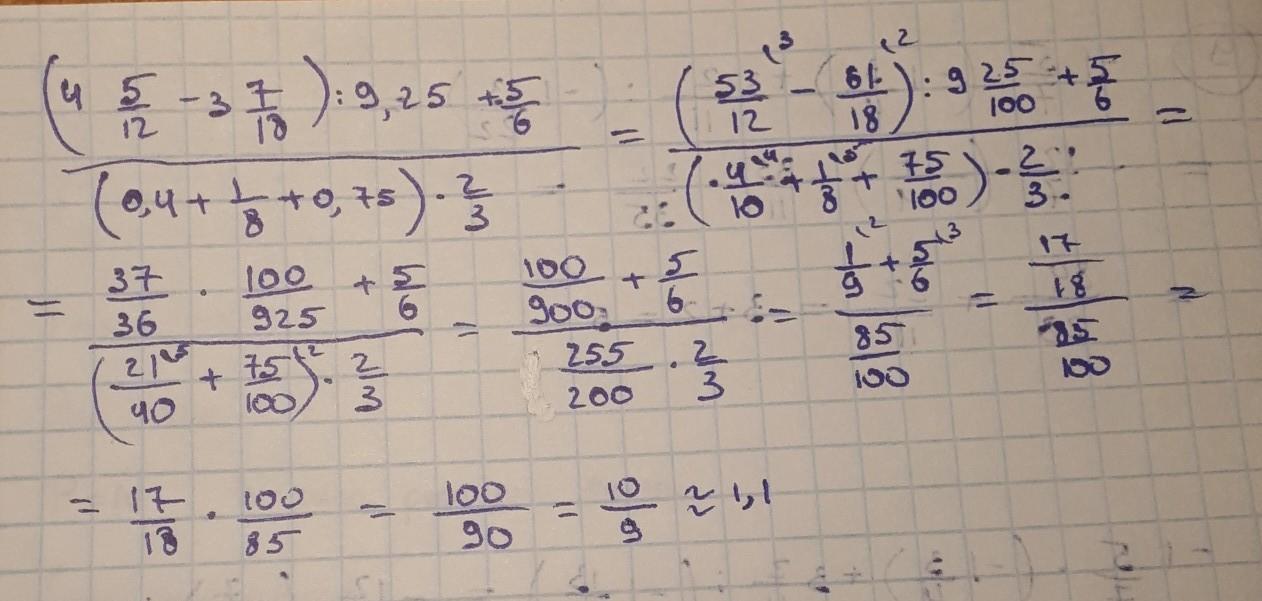 ((4 5/12 - 3 7/18) : 9,25 + 5/6) / ((0,4 + 1/8 + 0,75) · 2/3) = ((53/12 \3 - 61/18 \2) : 9 25/100 + 5/6) / ((4/10 \4 + 1/8 \5 + 75/100) · 2/3) =
= (37/36 · 100/925 + 5/6) / ((21/40 \5 + 75/100 \2) · 2/3) = (100/900 + 5/6) / (255/200 · 2/3) = (1/9 \2 + 5/6 \3) / (85/100) = (17/18) / (85/100) =
= 17/18 · 100/85 = 100/90 = 10/9 ≈ 1,1